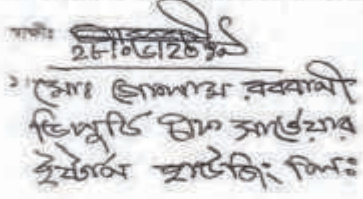 স্বাক্ষীঃ
২৮/০৮/২০১৭
১। মোঃ গোলাম রববানী
ডিপুটি চীফ সার্ভেয়ার
ইষ্টার্ন হাউজিং লিঃ